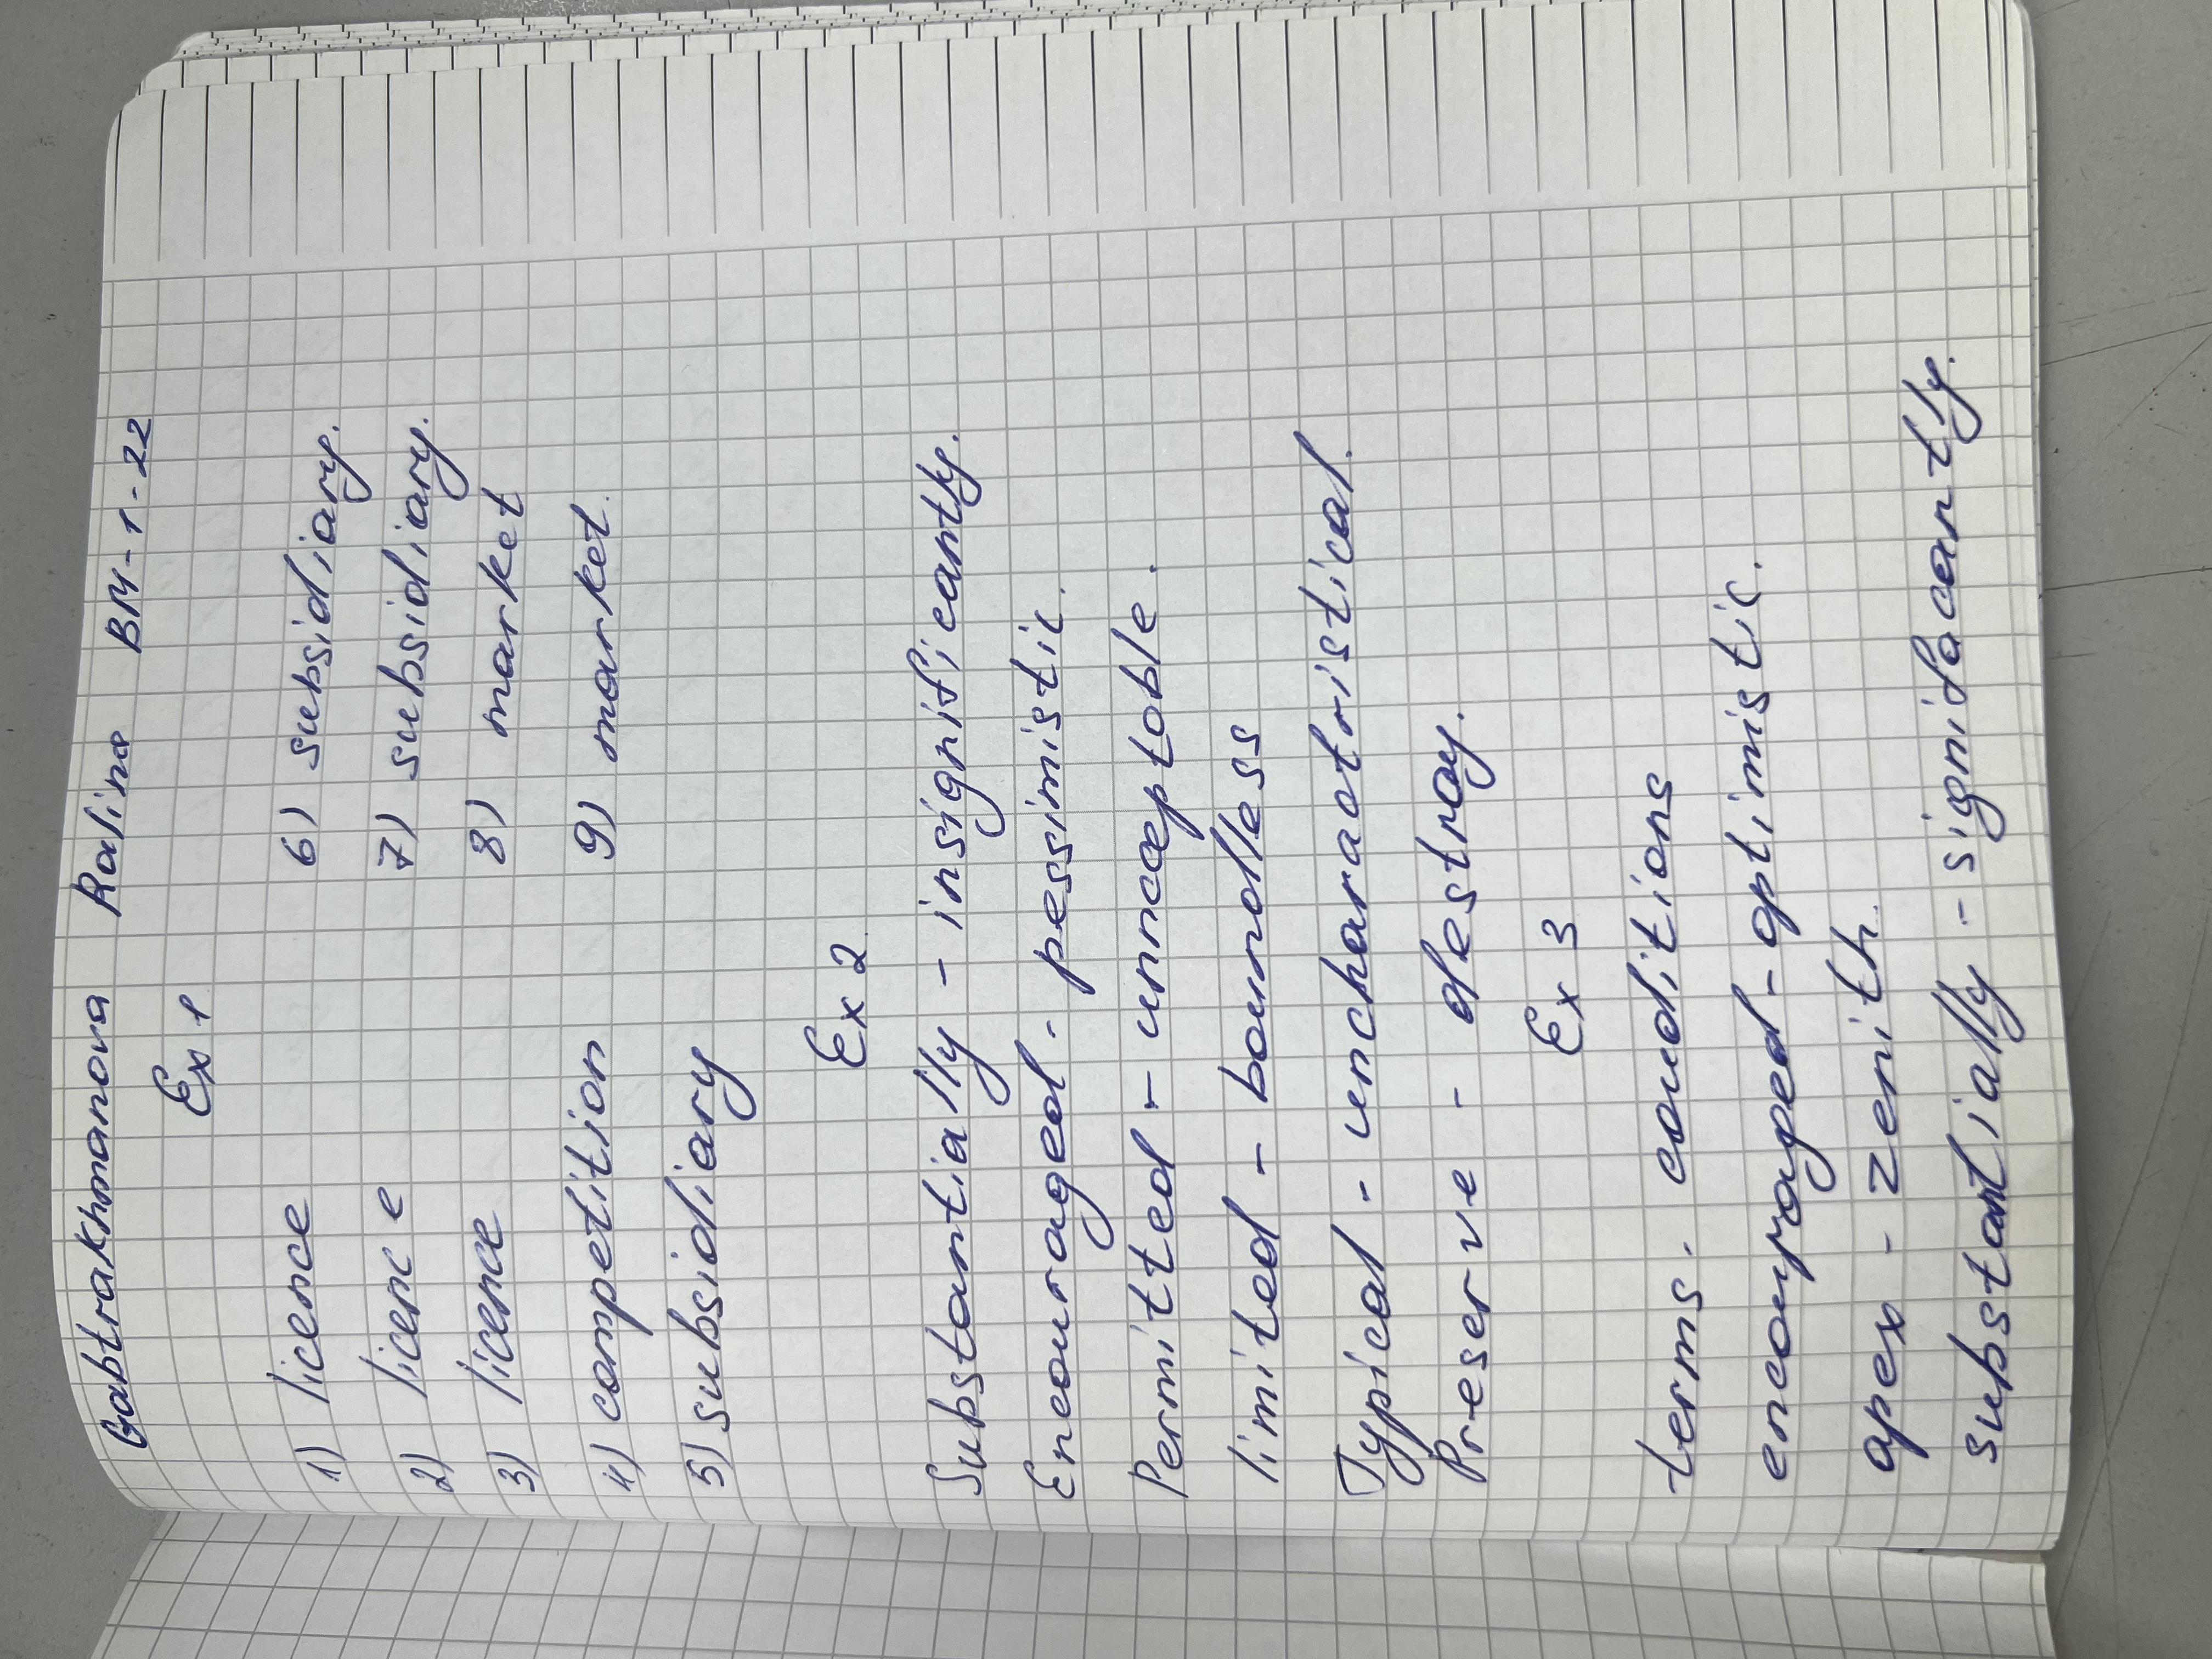 Gabtrakhmanova Ralina BM-1-22
Ex 1
1) licence 6) subsidiary.
2) licence 7) subsidiary.
3) licence 8) market
4) competition 9) market.
5) subsidiary
Ex 2
Substantially - insignificantly.
Encouraged - pessimistic.
Permitted - unnacceptable.
limited - boundless
Typical - uncharactristical.
Preserve - destroy.
Ex 3
terms - conditions
encouraged - optimistic.
apex - zenith.
substantially - signifacantly.